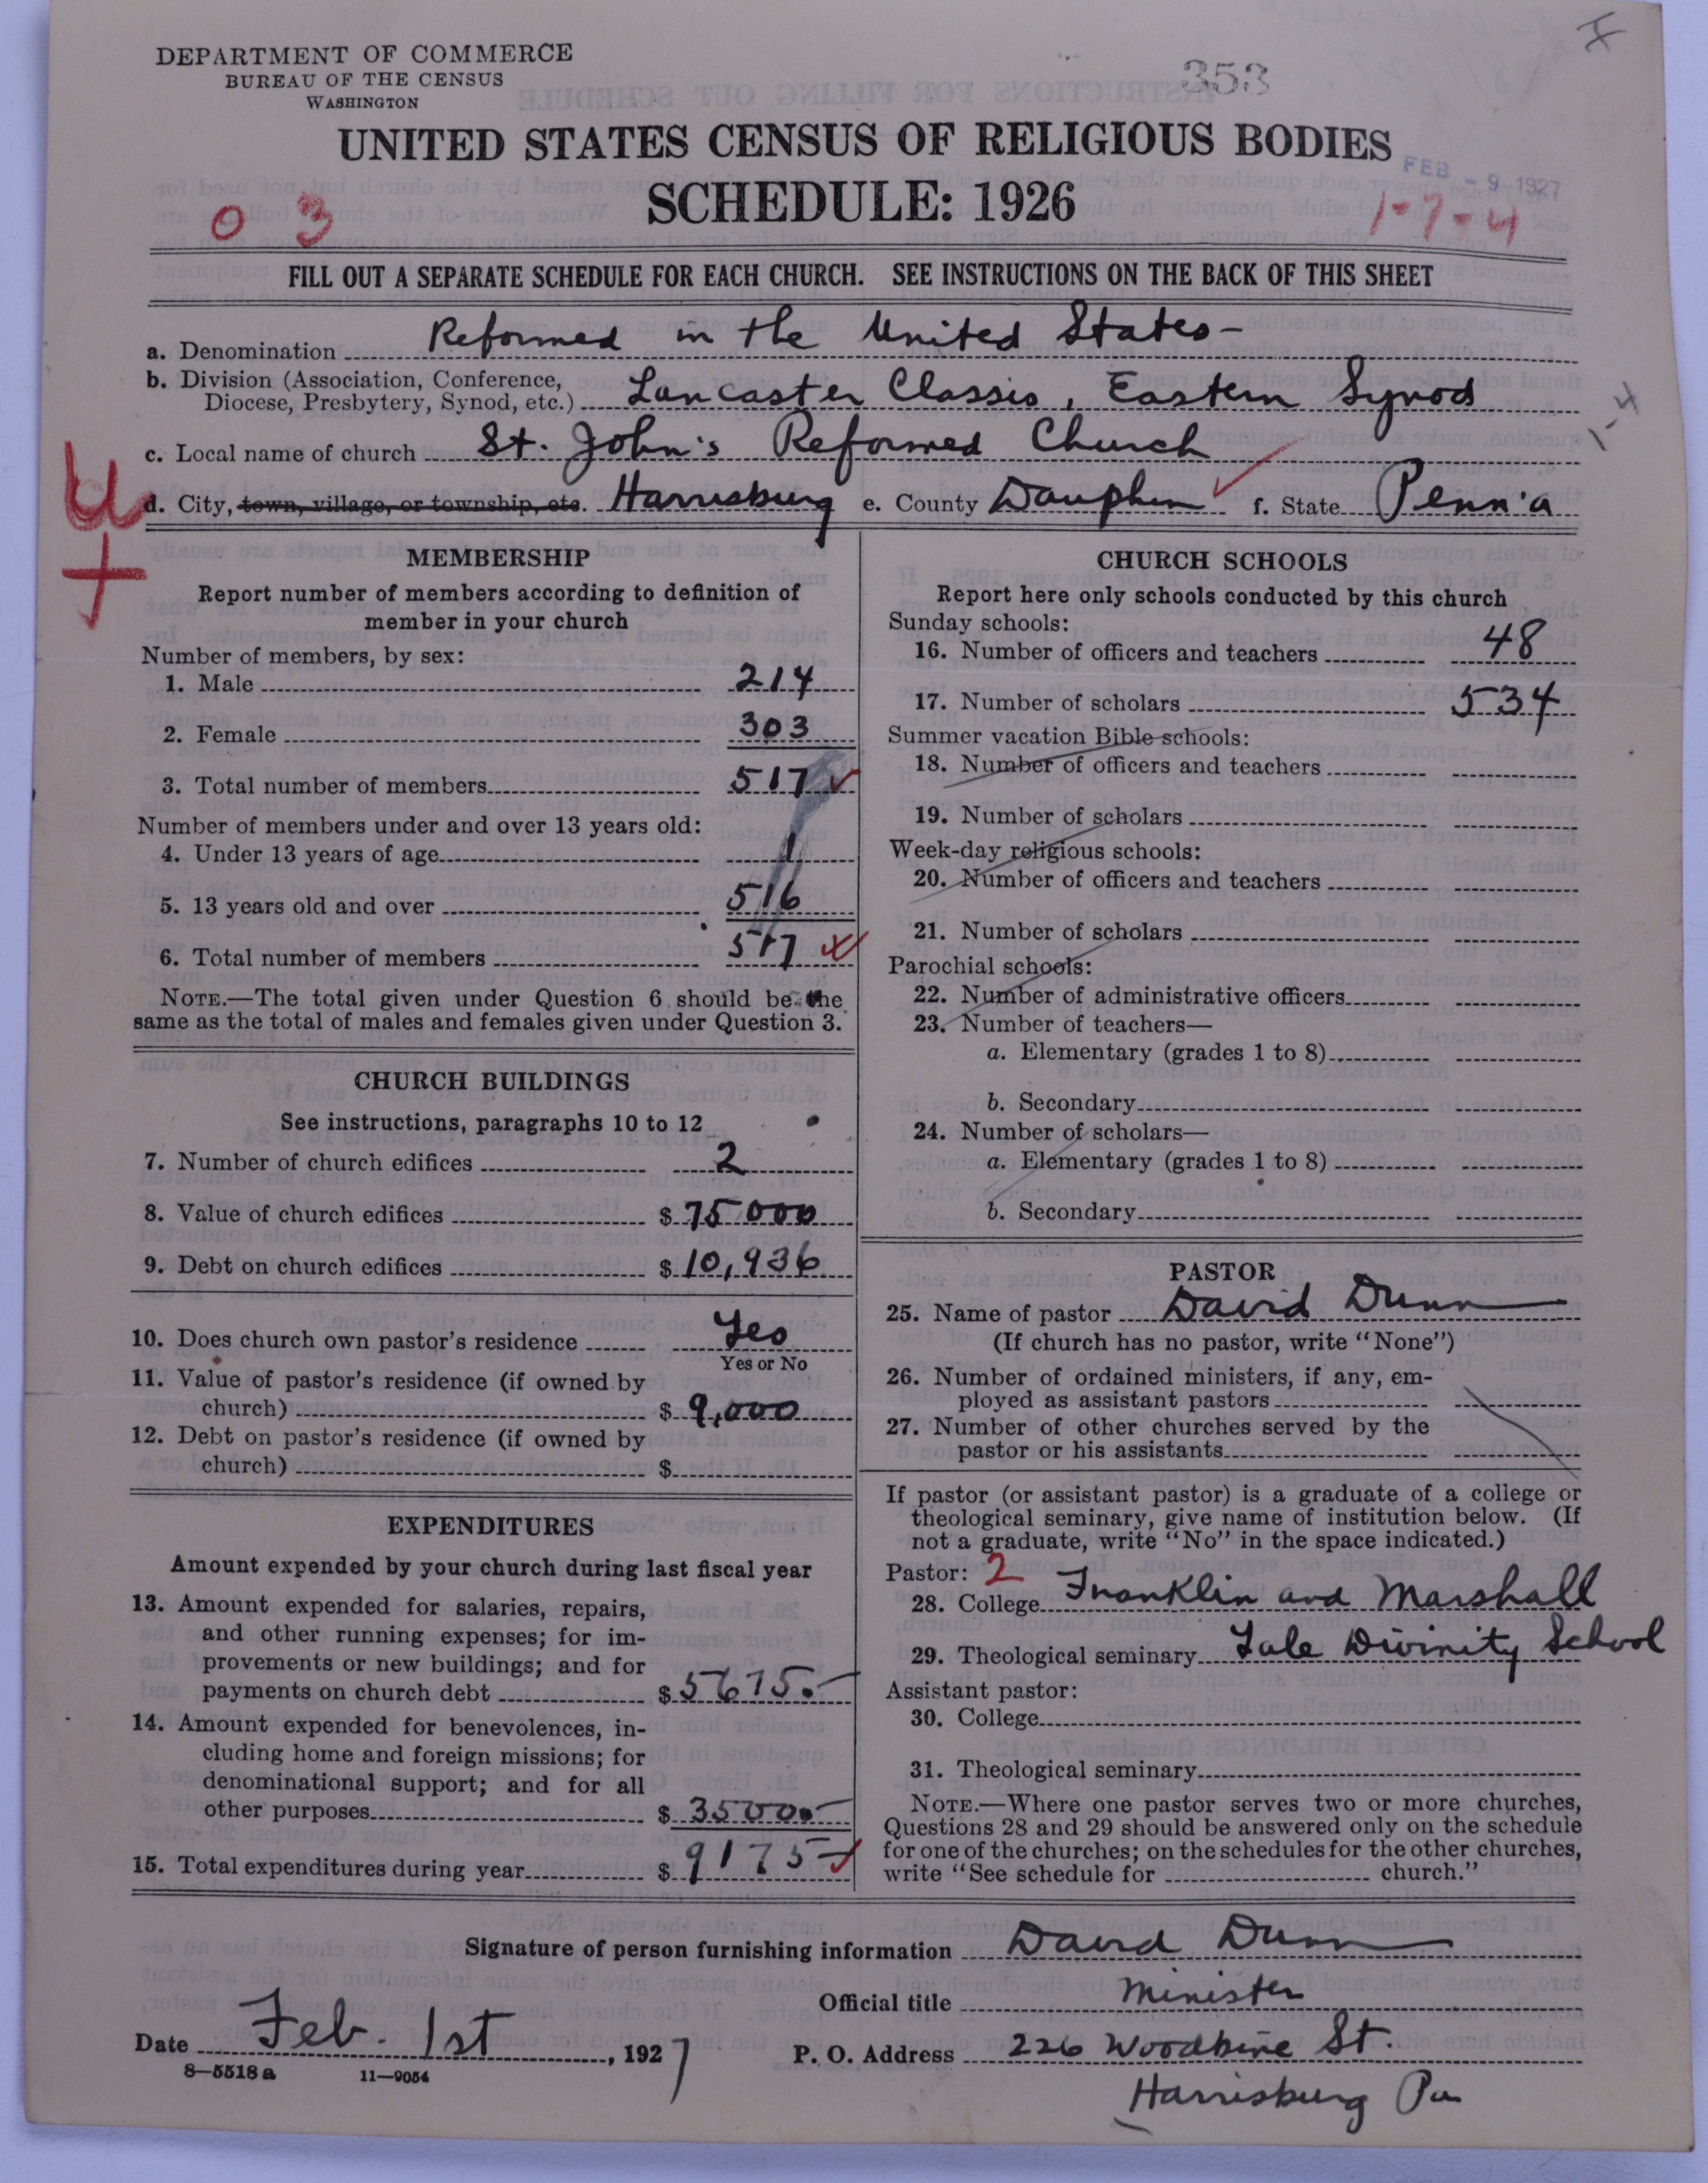 DEPARTMENT OF COMMERCE
BUREAU OF THE CENSUS
WASHINGTON
353
UNITED STATES CENSUS OF RELIGIOUS BODIES
SCHEDULE: 1926
FEB - 9 1927
0 3
1-7-4
FILL OUT A SEPARATE SCHEDULE FOR EACH CHURCH. SEE INSTRUCTIONS ON THE BACK OF THIS SHEET
a. Denomination Reformed in the United States-
b. Division (Association, Conference, Diocese, Presbytery, Synod, etc.) Lancaster Classis, Eastern Synod
1-4
c. Local name of church St. John's Reformed Church
d. City, town, village, or township, etc. Harrisburg e. County Dauphin f. State Penn'a
MEMBERSHIP
Report number of members according to definition of
member in your church
Number of members, by sex:
1. Male 214
2. Female 303
3. Total number of members 517
Number of members under and over 13 years old:
4. Under 13 years of age 1
5. 13 years old and over 516
6. Total number of members 517
NOTE.—The total given under Question 6 should be the
same as the total of males and females given under Question 3.
CHURCH BUILDINGS
See instructions, paragraphs 10 to 12
7. Number of church edifices 2
8. Value of church edifices $ 75000
9. Debt on church edifices $ 10,936
10. Does church own pastor's residence Yes
Yes or No
11. Value of pastor's residence (if owned by
church) $ 9,000
12. Debt on pastor's residence (if owned by
church) $
EXPENDITURES
Amount expended by your church during last fiscal year
13. Amount expended for salaries, repairs,
and other running expenses; for im-
provements or new buildings; and for
payments on church debt $ 5675.-
14. Amount expended for benevolences, in-
cluding home and foreign missions; for
denominational support; and for all
other purposes $ 3500.-
15. Total expenditures during year $ 9175-
CHURCH SCHOOLS
Report here only schools conducted by this church
Sunday schools:
16. Number of officers and teachers 48
17. Number of scholars 534
Summer vacation Bible schools:
18. Number of officers and teachers
19. Number of scholars
Week-day religious schools:
20. Number of officers and teachers
21. Number of scholars
Parochial schools:
22. Number of administrative officers
23. Number of teachers—
a. Elementary (grades 1 to 8)
b. Secondary
24. Number of scholars—
a. Elementary (grades 1 to 8)
b. Secondary
PASTOR
25. Name of pastor David Dunn
(If church has no pastor, write "None")
26. Number of ordained ministers, if any, em-
ployed as assistant pastors
27. Number of other churches served by the
pastor or his assistants
If pastor (or assistant pastor) is a graduate of a college or
theological seminary, give name of institution below. (If
not a graduate, write "No" in the space indicated.)
Pastor: 2
28. College Franklin and Marshall
29. Theological seminary Yale Divinity School
Assistant pastor:
30. College
31. Theological seminary
NOTE.—Where one pastor serves two or more churches,
Questions 28 and 29 should be answered only on the schedule
for one of the churches; on the schedules for the other churches,
write "See schedule for church."
Signature of person furnishing information David Dunn
Official title Minister
Date Feb. 1st, 1927 P. O. Address 226 Woodbine St.
Harrisburg Pa
8—5518 a 11—9054